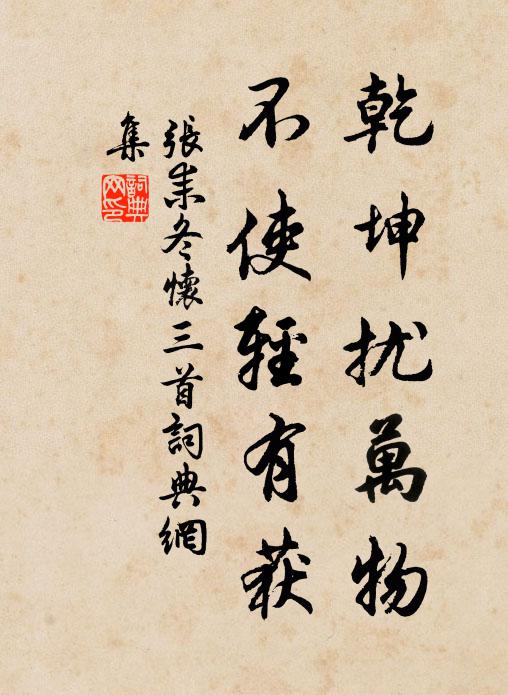 乾坤扰萬物
不使輕有获
張耒冬懷三首詞典網
集
詞典
网印